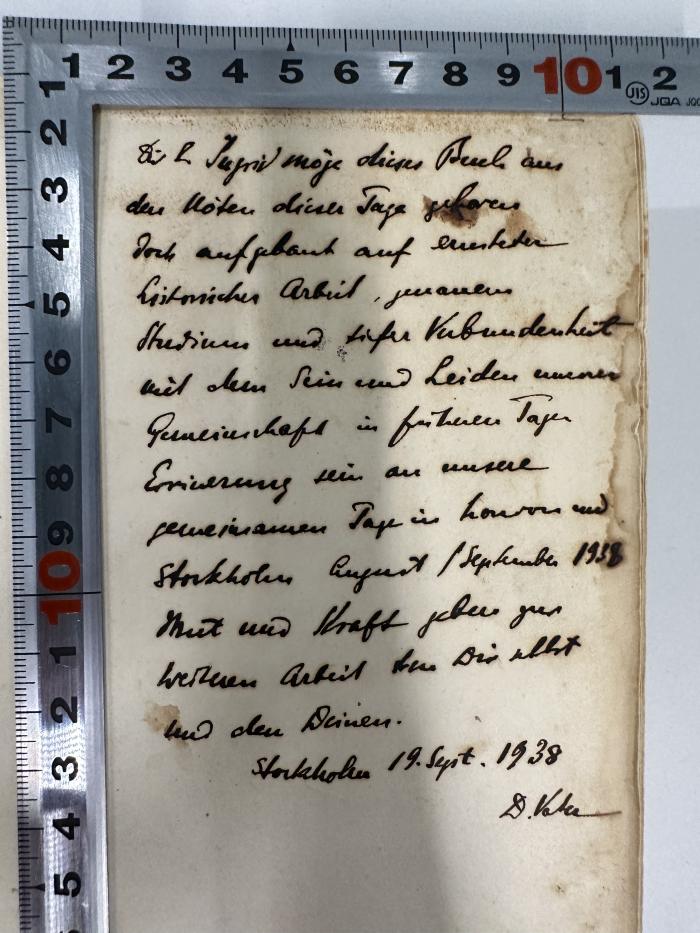 1 2 3 4 5 6 7 8 9 10 1 2
JIS JQA JQ
1
2
3
4
5
6
7
8
9
10
1
2
3
4
5
Dir l. Ingrid möge dieses Buch aus
den Nöten dieser Tage geboren
doch aufgebaut auf ernster
historischer Arbeit, genauem
Studium und tiefer Verbundenheit
mit dem Sein und Leiden unserer
Gemeinschaft in früheren Tagen
Erinnerung sein an unsere
gemeinsamen Tage in London und
Stockholm August / September 1938
Mut und Kraft geben zur
weiteren Arbeit an Dir selbst
und den Deinen.
Stockholm 19. Sept. 1938
D. Vater